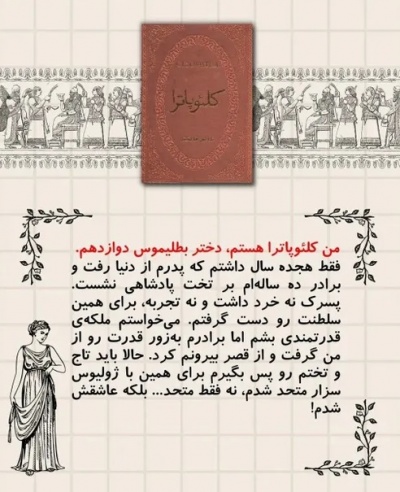 کلئوپاترا
من کلئوپاترا هستم، دختر بطلیموس دوازدهم.
فقط هجده سال داشتم که پدرم از دنیا رفت و
برادر ده ساله‌ام بر تخت پادشاهی نشست.
پسرک نه خرد داشت و نه تجربه، برای همین
سلطنت رو دست گرفتم. می‌خواستم ملکه‌ی
قدرتمندی بشم اما برادرم به‌زور قدرت رو از
من گرفت و از قصر بیرونم کرد. حالا باید تاج
و تختم رو پس بگیرم برای همین با ژولیوس
سزار متحد شدم، نه فقط متحد... بلکه عاشقش
شدم!